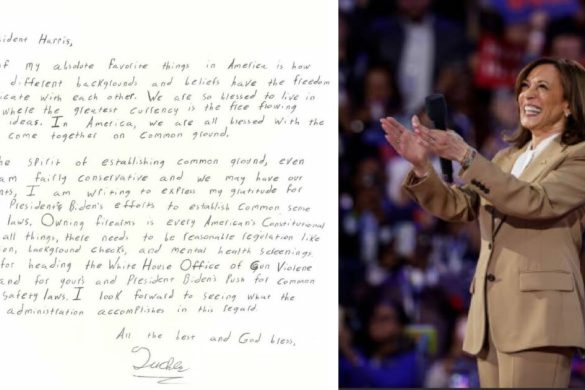 sident Harris,
of my absolute favorite things in America is how
different backgrounds and beliefs have the freedom
icate with each other. We are so blessed to live in
where the greatest currency is the free flowing
ideas. In America, we are all blessed with the
come together on common ground.
he spirit of establishing common ground, even
am fairly conservative and we may have our
nts, I am writing to express my gratitude for
President Biden's efforts to establish common sense
laws. Owning firearms is every American's Constitutional
all things, there needs to be reasonable legislation like
on, background checks, and mental health screenings.
for heading the White House Office of Gun Violence
and for yours and President Biden's push for common
safety laws. I look forward to seeing what the
administration accomplishes in this regard.
All the best and God bless,